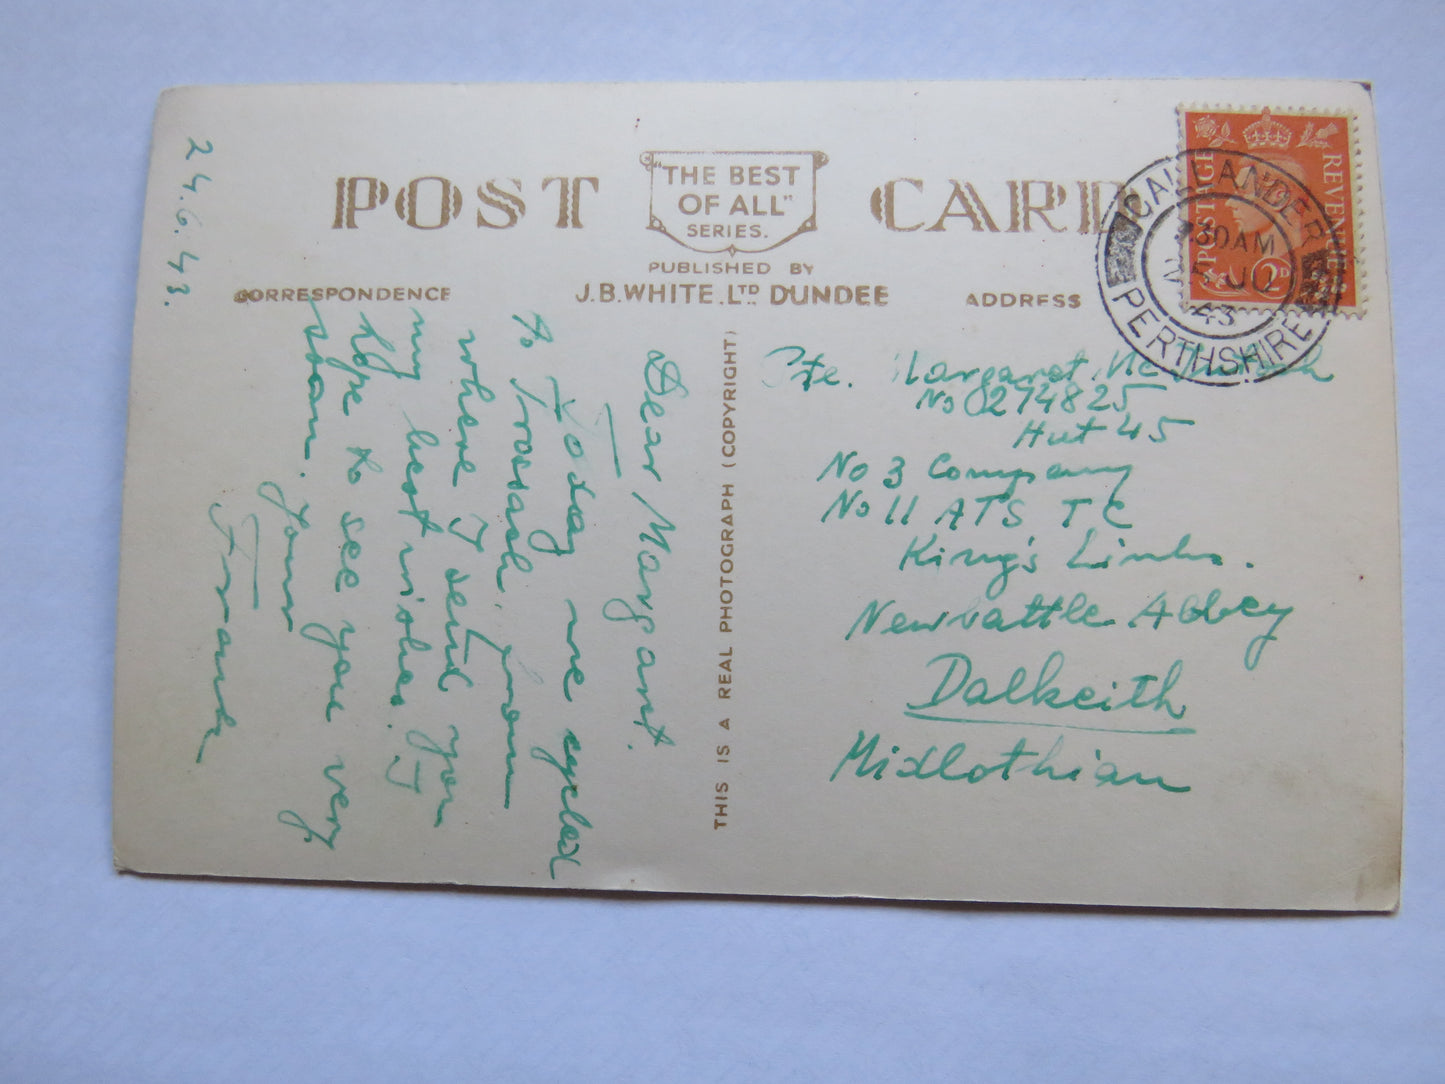 POST CARD
"THE BEST
OF ALL"
SERIES.
PUBLISHED BY
J.B.WHITE.LTD DUNDEE
CORRESPONDENCE
ADDRESS
THIS IS A REAL PHOTOGRAPH (COPYRIGHT)
24.6.43.
Dear Margaret.
Today we cycled
to Trossach, from
where I send you
my best wishes. I
hope to see you very
soon.
Yours
Frank
Pte. Margaret
No 274825
Hut 45
No 3 Company
No 11 ATS T C
King's Lines.
Newbattle Abbey
Dalkeith
Midlothian
POSTAGE
REVENUE
2D
CALLANDER
30AM
5 JU
43
PERTHSHIRE